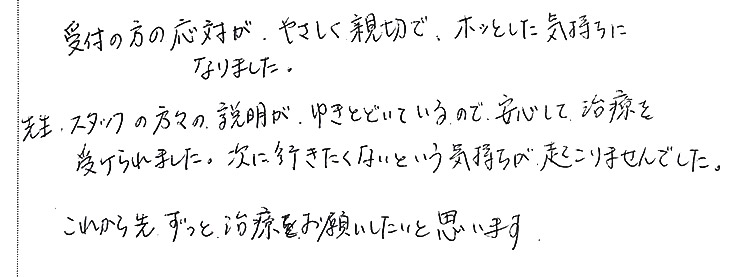 受付の方の応対が、やさしく親切で、ホッとした気持ちに
なりました。
先生、スタッフの方々の説明が、ゆきとどいているので、安心して治療を
受けられました。次に行きたくないという気持ちが起こりませんでした。
これから先ずっと治療をお願いしたいと思います.